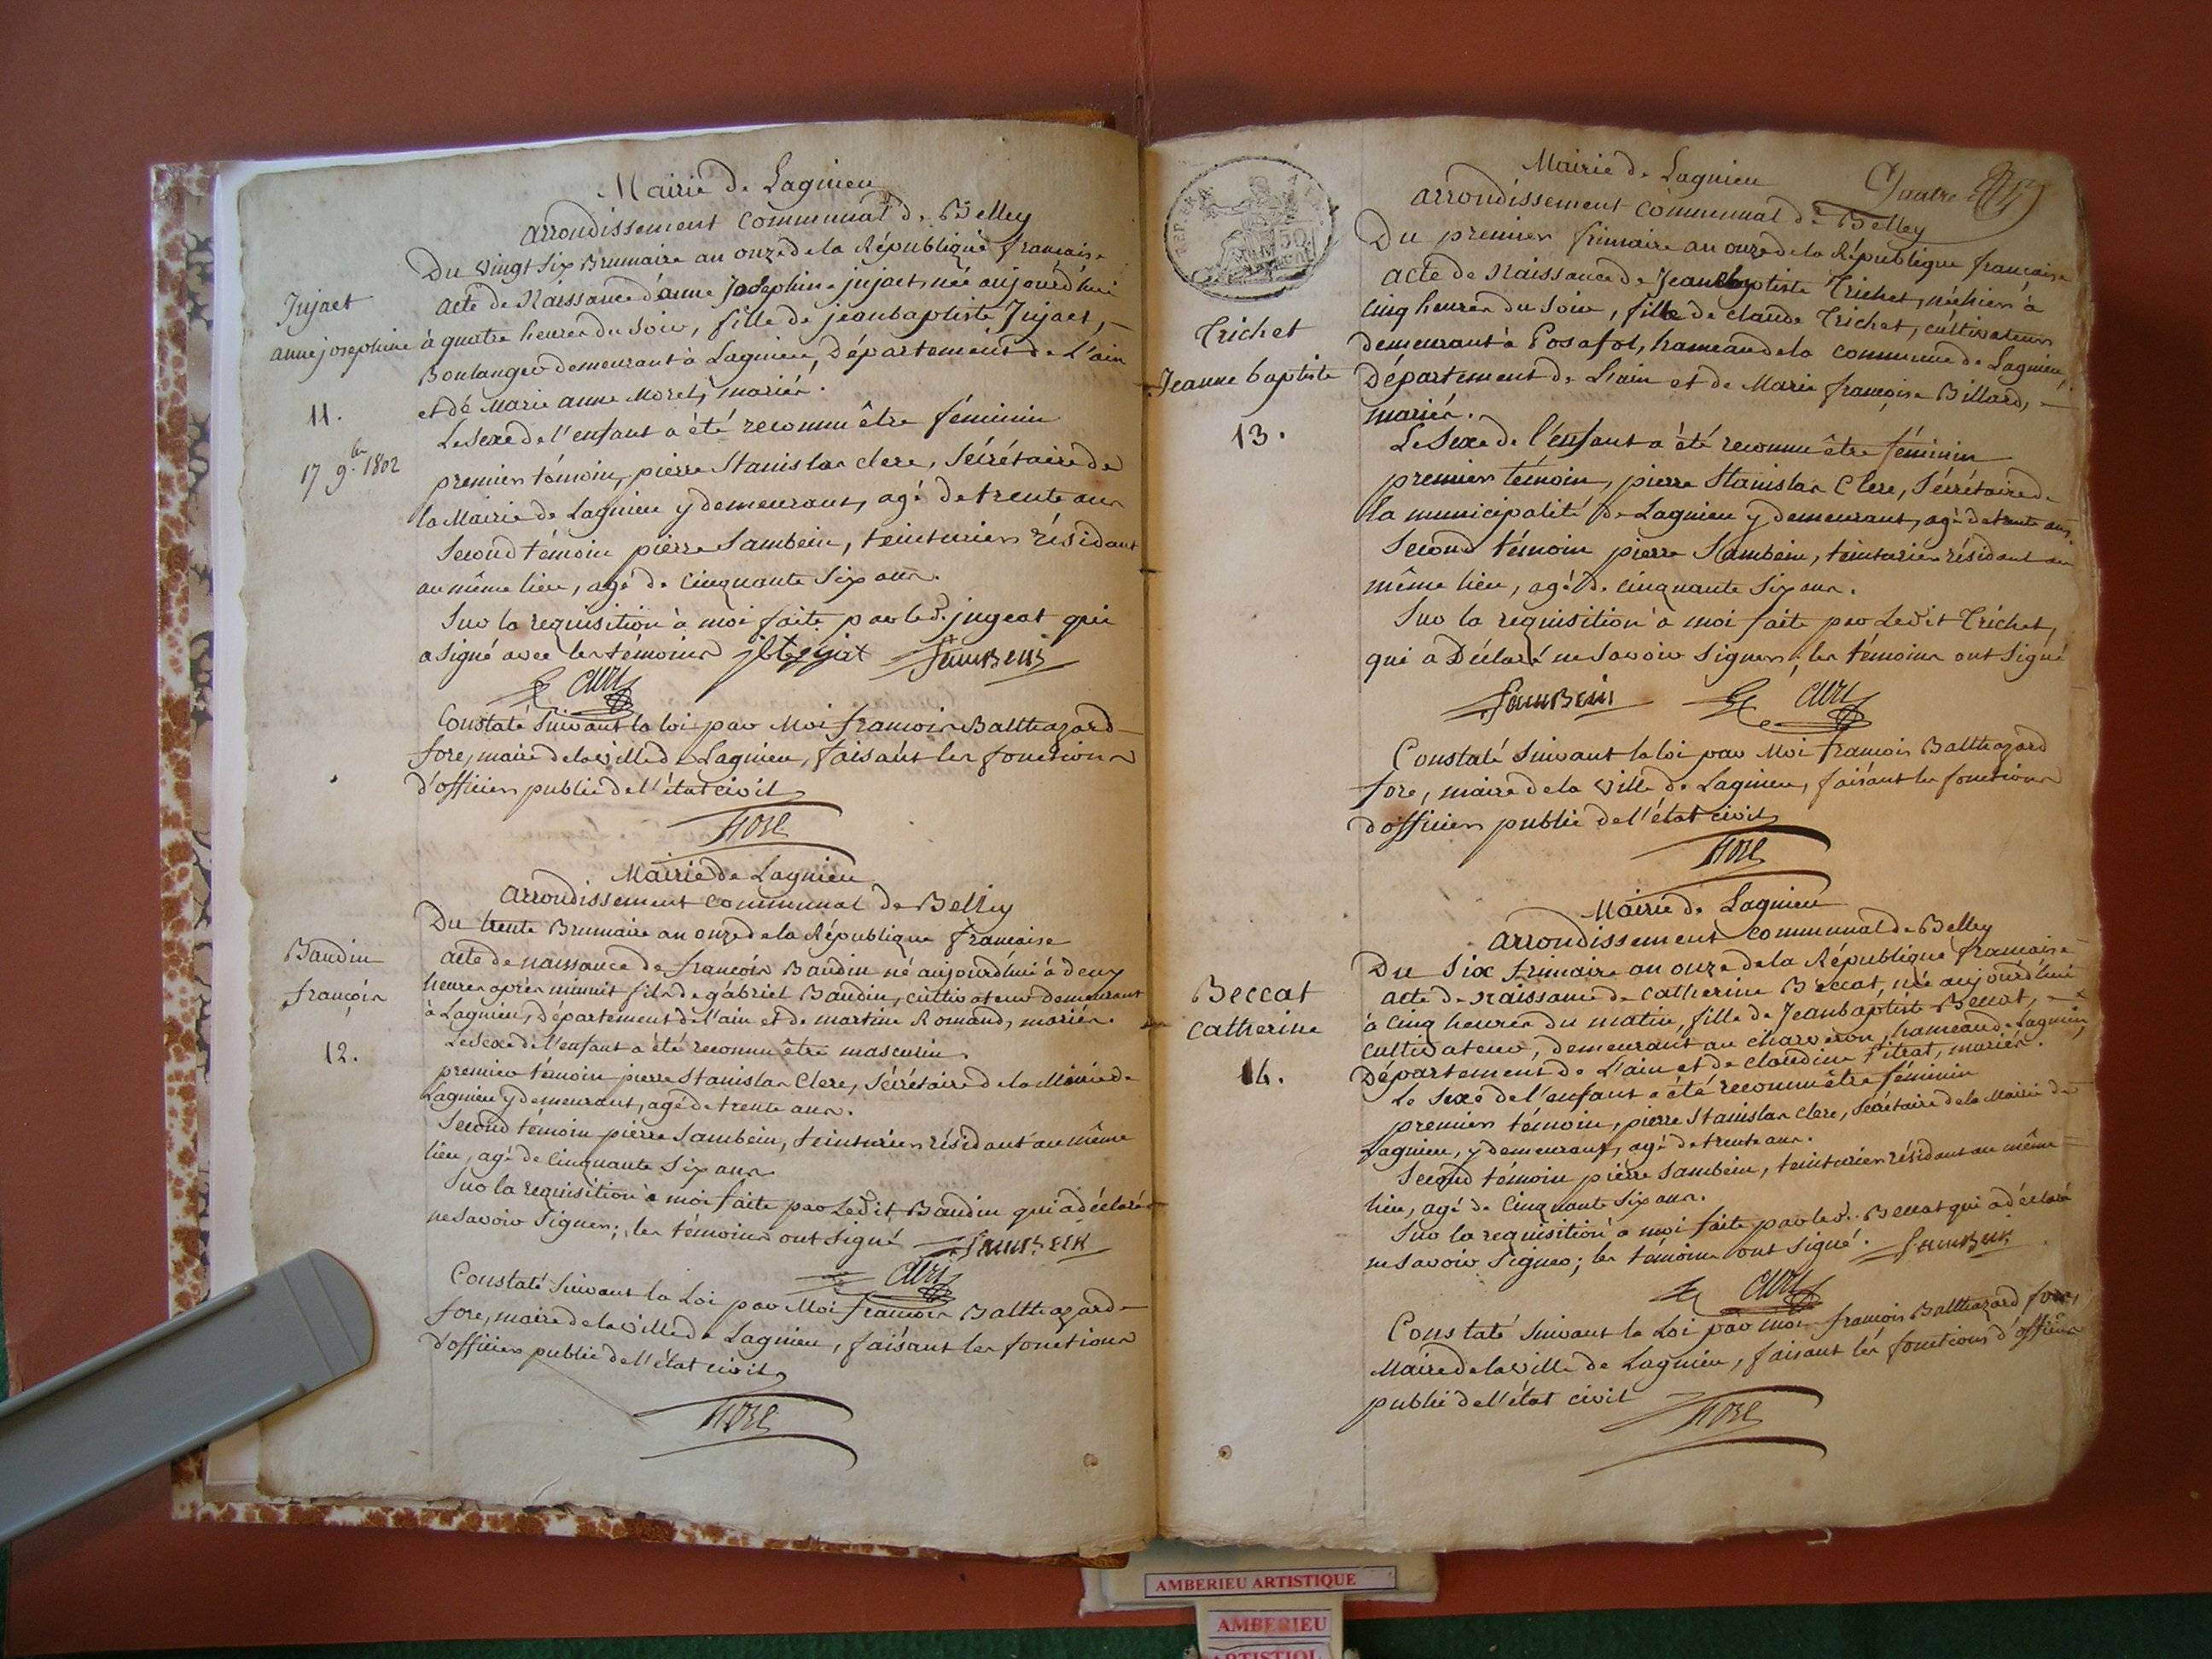 Mairie de Lagnieu
arrondissement communal de Belley
Du vingt six Brumaire an onze de la République française
Jujaet
anne josephine
11.
17 9.bre 1802
acte de Naissance d'anne Josephine jujaet, née aujourd'hui
à quatre heures du soir, fille de jean baptiste Jujaet,
Boulanger demeurant à Lagnieu, Département de L'ain
et de Marie anne Morel, mariés.
Le sexe de l'enfant a été reconnu être féminin
premier témoin, pierre Stanislas clerc, Sécrétaire de
la Mairie de Lagnieu y demeurant, agé de trente ans
Second témoin pierre Sambein, teinturier résidant
au même lieu, agé de cinquante six ans.
Sur la requisition à moi faite par led. jugeat qui
a signé avec les témoins
Constaté suivant la loi par Moi francois Balthazard
fore, maire de la ville de Lagnieu, faisant les fonctions
d'officier public de l'état civil
fore
Mairie de Lagnieu
arrondissement communal de Belley
Du trente Brumaire an onze de la République française
Baudin
françois
12.
acte de naissance de françois Baudin né aujourd'hui à deux
heures après minuit fils de gabriel Baudin, cultivateur demeurant
à Lagnieu, département de l'ain et de martine Romand, mariés.
Le sexe de l'enfant a été reconnu être masculin.
premier témoin pierre Stanislas Clerc, Sécrétaire de la Mairie de
Lagnieu y demeurant, agé de trente ans.
Second témoin pierre Sambein, teinturier résidant au même
lieu, agé de cinquante six ans
Sur la requisition à moi faite par Ledit Baudin qui a déclaré
ne savoir signer; les témoins ont signé
Constaté suivant la Loi par Moi françois Balthazard
fore, maire de la ville de Lagnieu, faisant les fonctions
d'officier public de l'état civil
fore
Mairie de Lagnieu
Quatre
arrondissement communal de Belley
REP. FRA
50
Du premier frimaire an onze de la République française
Trichet
Jeanne baptiste
13.
acte de Naissance de Jeanne baptiste Trichet, née hier à
cinq heures du soir, fille de claude Trichet, cultivateur
demeurant à Posafol, hameau de la commune de Lagnieu,
Département de L'ain et de Marie françoise Billard,
mariés.
Le Sexe de l'enfant a été reconnu être féminin
premier témoin, pierre Stanislas Clerc, Sécrétaire de
la municipalité de Lagnieu y demeurant, agé de trente ans.
Second témoin pierre Sambein, teinturier résidant au
même lieu, agé de cinquante six ans.
Sur la requisition à moi faite par Ledit Trichet,
qui a Déclaré ne savoir signer; les témoins ont signé
Constaté suivant la loi par Moi françois Balthazard
fore, maire de la ville de Lagnieu, faisant les fonctions
d'officier public de l'état civil
fore
Mairie de Lagnieu
arrondissement communal de Belley
Du Six frimaire an onze de la République française
Beccat
Catherine
14.
acte de Naissance de Catherine Beccat, née aujourd'hui
à cinq heures du matin, fille de Jean baptiste Beccat,
cultivateur, demeurant au charveron, hameau de Lagnieu,
Département de L'ain et de claudine Pitrat, mariés.
Le Sexe de l'enfant a été reconnu être féminin
premier témoin, pierre Stanislas clerc, Sécrétaire de la Mairie de
Lagnieu, y demeurant, agé de trente ans.
Second témoin pierre Sambein, teinturier résidant au même
lieu, agé de cinquante six ans.
Sur la requisition à moi faite par led. Beccat qui a déclaré
ne savoir signer; les témoins ont signé.
Constaté suivant la Loi par moi françois Balthazard fore,
Maire de la ville de Lagnieu, faisant les fonctions d'officier
public de l'état civil
fore
AMBERIEU ARTISTIQUE
AMBERIEU